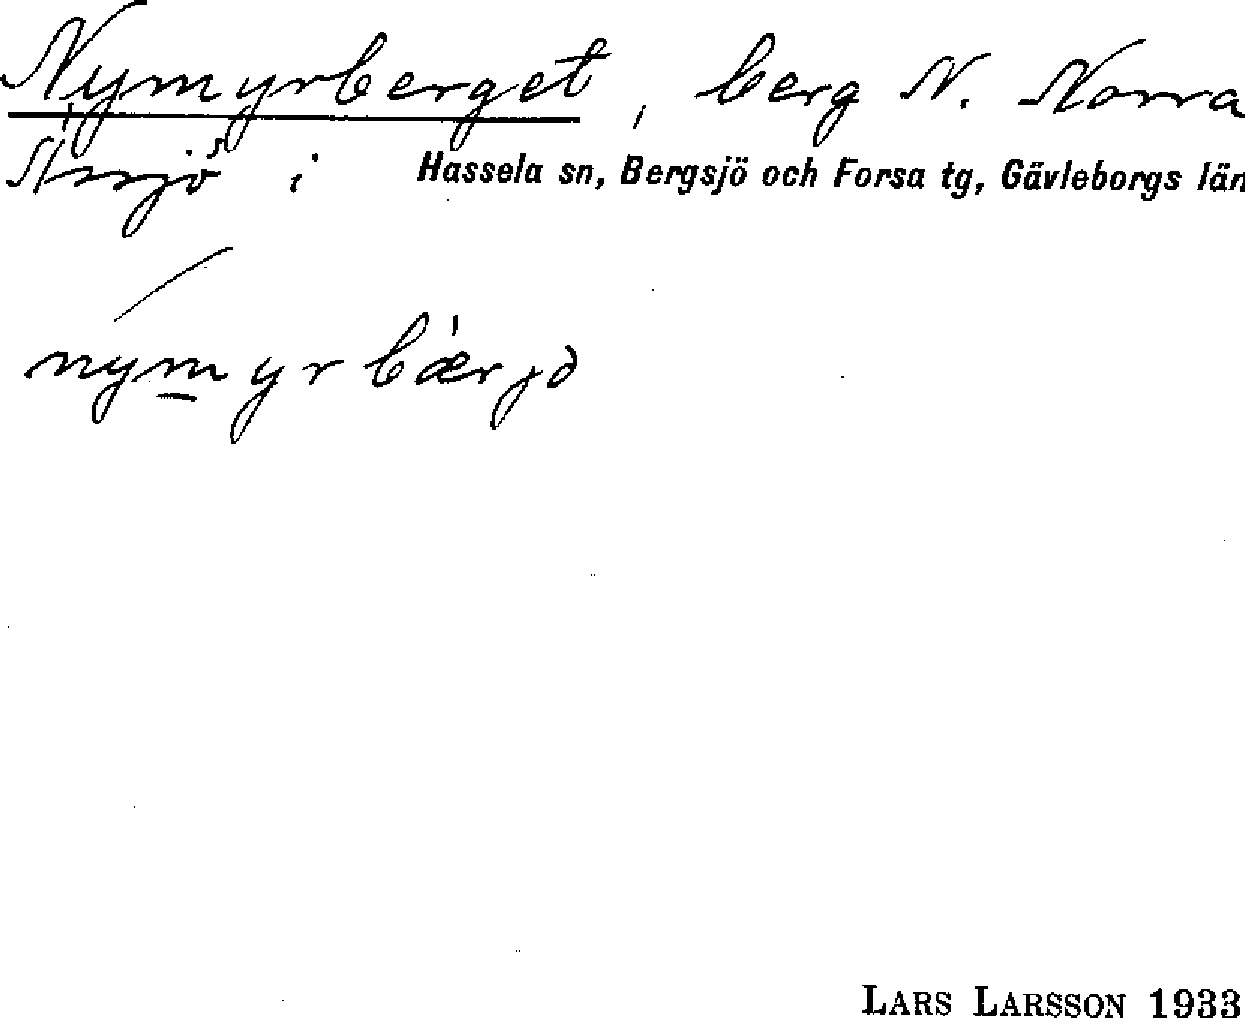 Nymyrberget, berg N. Norra
Älvsjö i Hassela sn, Bergsjö och Forsa tg, Gävleborgs län
nymyrbærjə
LARS LARSSON 1933